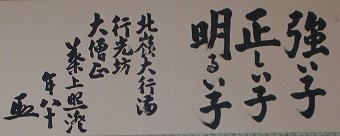 強い子
正しい子
明るい子
北嶺大行満
行光坊
大僧正
葉上照澄
年八十